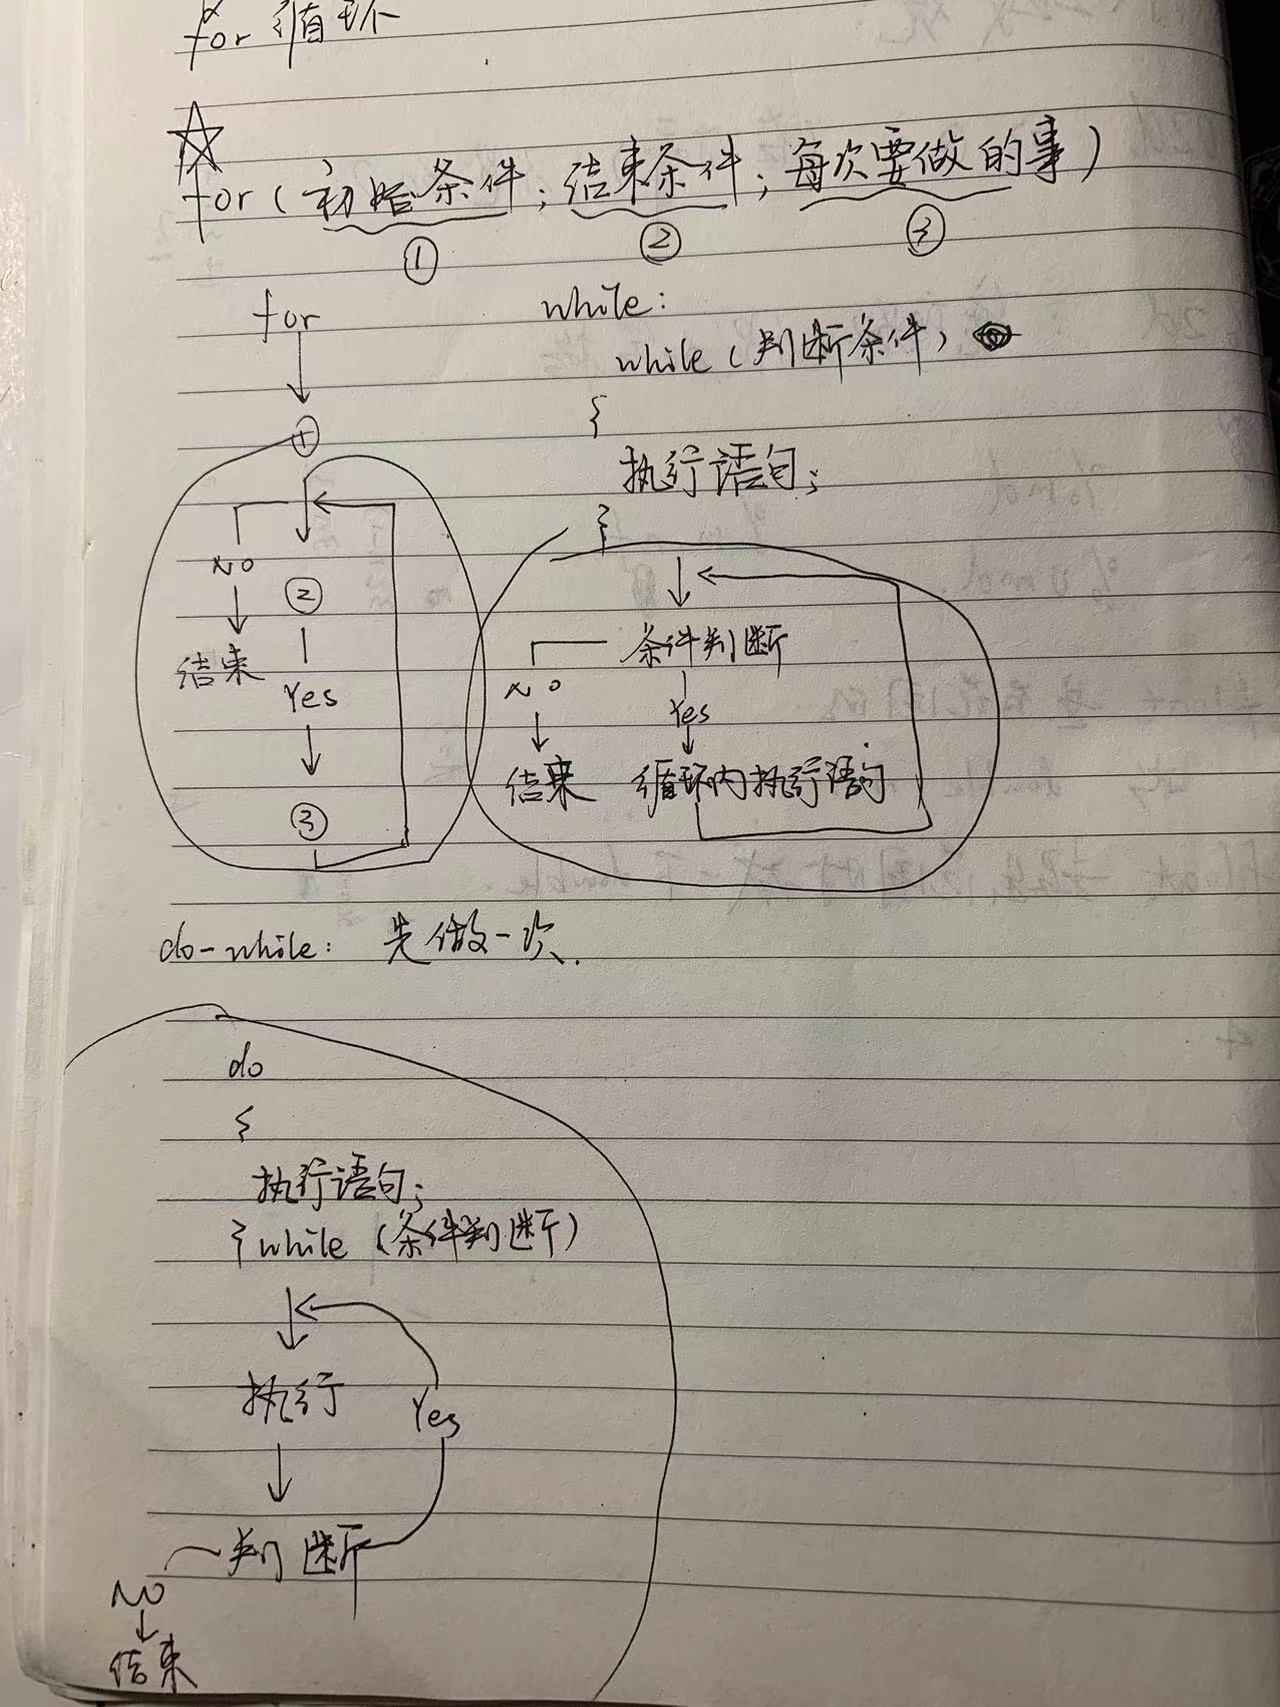 for 循环
for(初始条件;结束条件;每次要做的事)
① ② ③
for
①
No
结束
②
Yes
③
while:
while(判断条件)
{
执行语句;
}
条件判断
No
结束
Yes
循环内执行语句
do-while: 先做一次.
do
{
执行语句;
}while(条件判断)
执行
Yes
判断
No
结束